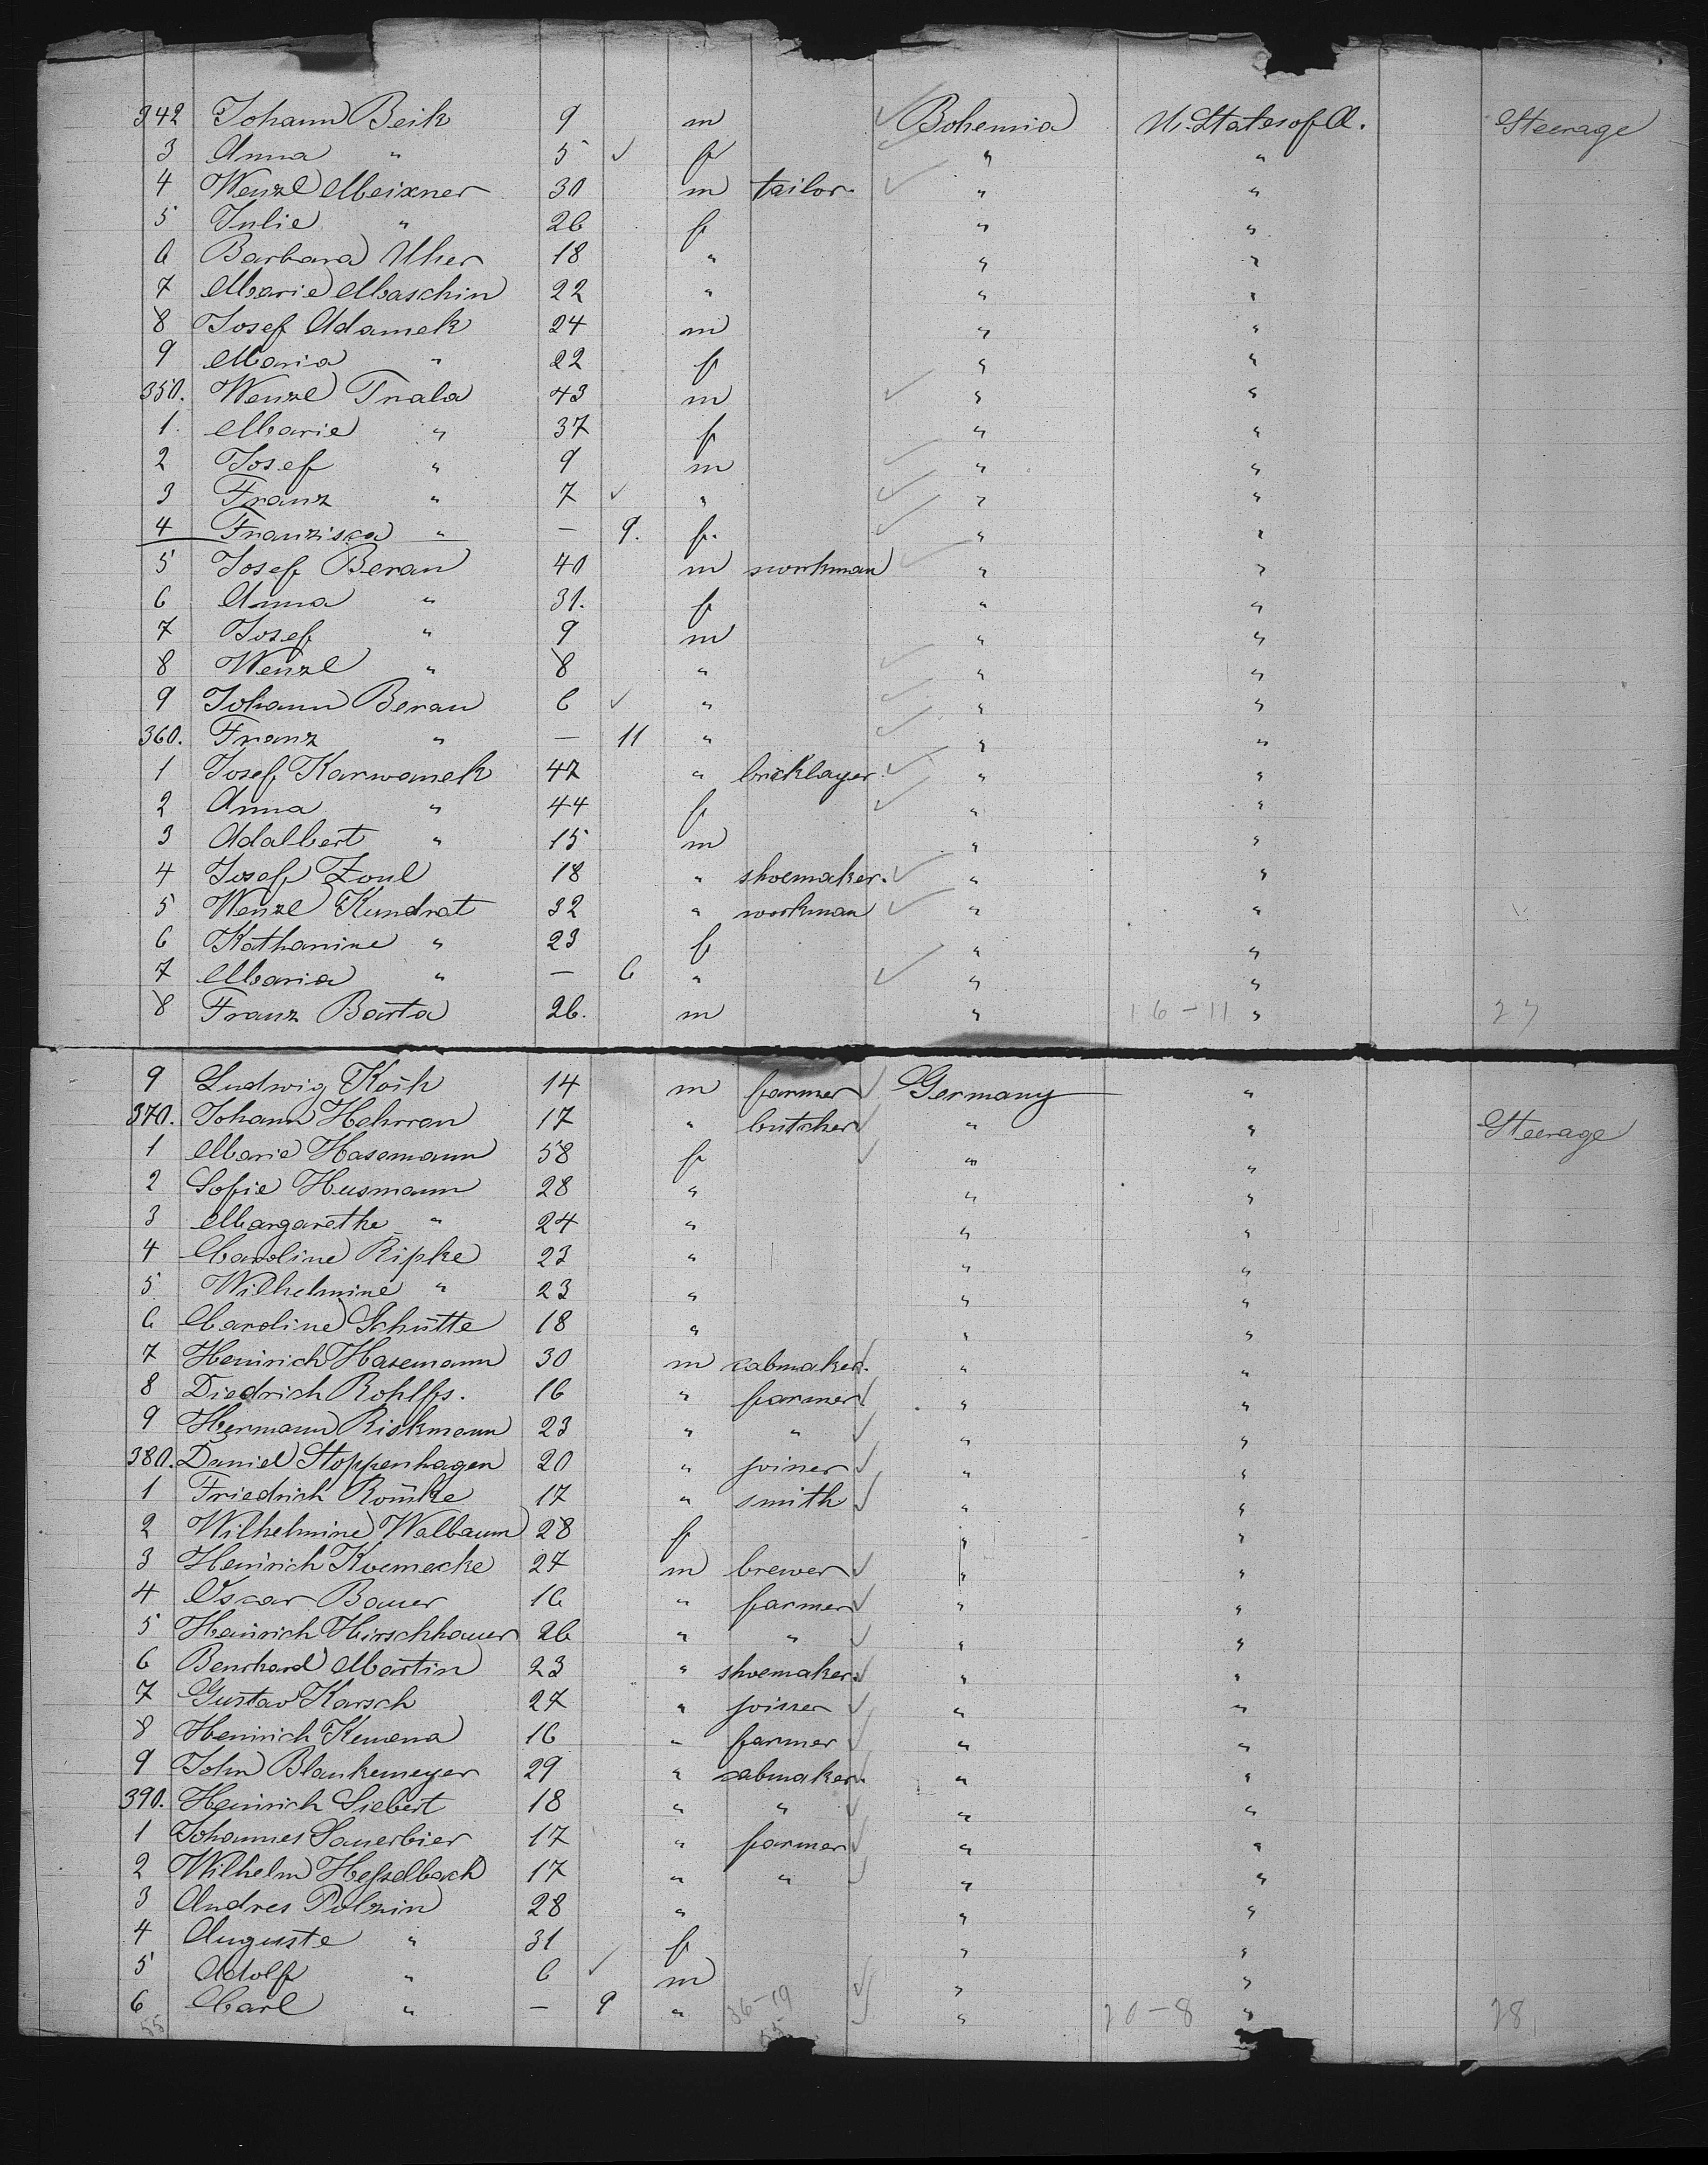 342 Johann Beik 9 m Bohemia U. States of A. Steerage
3 Anna " 5 f " "
4 Wenzl Meixner 30 m tailor. " "
5 Julie " 26 f " "
6 Barbara Uher 18 " " "
7 Marie Maschin 22 " " "
8 Josef Adamek 24 m " "
9 Maria " 22 f " "
350. Wenzl Trala 43 m " "
1. Marie " 37 f " "
2 Josef " 9 m " "
3 Franz " 7 " " "
4 Franzisca " — 9. f. " "
5 Josef Beran 40 m workman " "
6 Anna " 31. f " "
7 Josef " 9 m " "
8 Wenzl " 8 " " "
9 Johann Beran 6 " " "
360. Franz " — 11 " " "
1 Josef Karwanek 47 " bricklayer " "
2 Anna " 44 f " "
3 Adalbert " 15 m " "
4 Josef Zoul 18 " shoemaker. " "
5 Wenzl Kundrat 32 " workman " "
6 Katharine " 23 f " "
7 Maria " — 6 " " "
8 Franz Barta 26. m " 16-11 " 27
9 Ludwig Koch 14 m farmer Germany "
370. Johann Hehrren 17 " butcher " " Steerage
1 Marie Hasemann 58 f " "
2 Sofie Husmann 28 " " "
3 Margarethe " 24 " " "
4 Caroline Ripke 23 " " "
5 Wilhelmine " 23 " " "
6 Caroline Schütte 18 " " "
7 Heinrich Hasemann 30 m cabmaker. " "
8 Diedrich Rohlfs. 16 " farmer " "
9 Hermann Riekmann 23 " " " "
380. Daniel Stoppenhagen 20 " joiner " "
1 Friedrich 17 " smith " "
2 Wilhelmine Walbaum 28 f " "
3 Heinrich Koenecke 27 m brewer " "
4 Oscar Bauer 16 " farmer " "
5 Heinrich Hirschhauer 26 " " " "
6 Bernhard Martin 23 " shoemaker. " "
7 Gustav Karsch 27 " joiner " "
8 Heinrich Kemena 16 " farmer " "
9 John Blankemeyer 29 " cabmaker. " "
390. Heinrich Siebert 18 " " " "
1 Johannes Sauerbier 17 " farmer " "
2 Wilhelm Hesselbach 17 " " " "
3 Andres Polzin 28 " " "
4 Auguste " 31 f " "
5 Adolf " 6 m " "
6 Carl " — 9 " 36-19 " 20-8 " 28
55 55